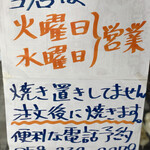 当店は
火曜日
水曜日
営業
焼き置きしてません
注文後に焼きます。
便利な電話予約